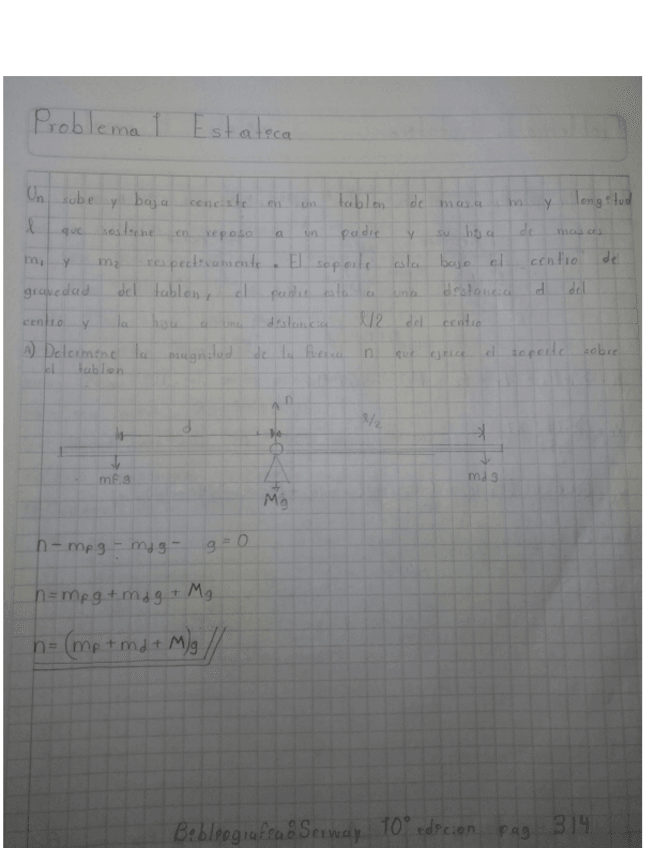 Problema 1 Estateca
Un sube y baja consiste en un tablon de masa m y longitud
l que sostiene en reposo a un padre y su hija de masas
m₁ y m₂ respectivamente. El soporte esta bajo el centro de
gravedad del tablon, el padre esta a una distancia d del
centro y la hija a una distancia l/2 del centro
A) Determine la magnitud de la fuerza n que ejerce el soporte sobre
el tablon
n
d l/2
mfg mdg
Mg
n-mfg-mdg- g=0
n=mfg+mdg+Mg
n=(mf+md+M)g//
Bebleografia8Serway 10° edecion pag 314